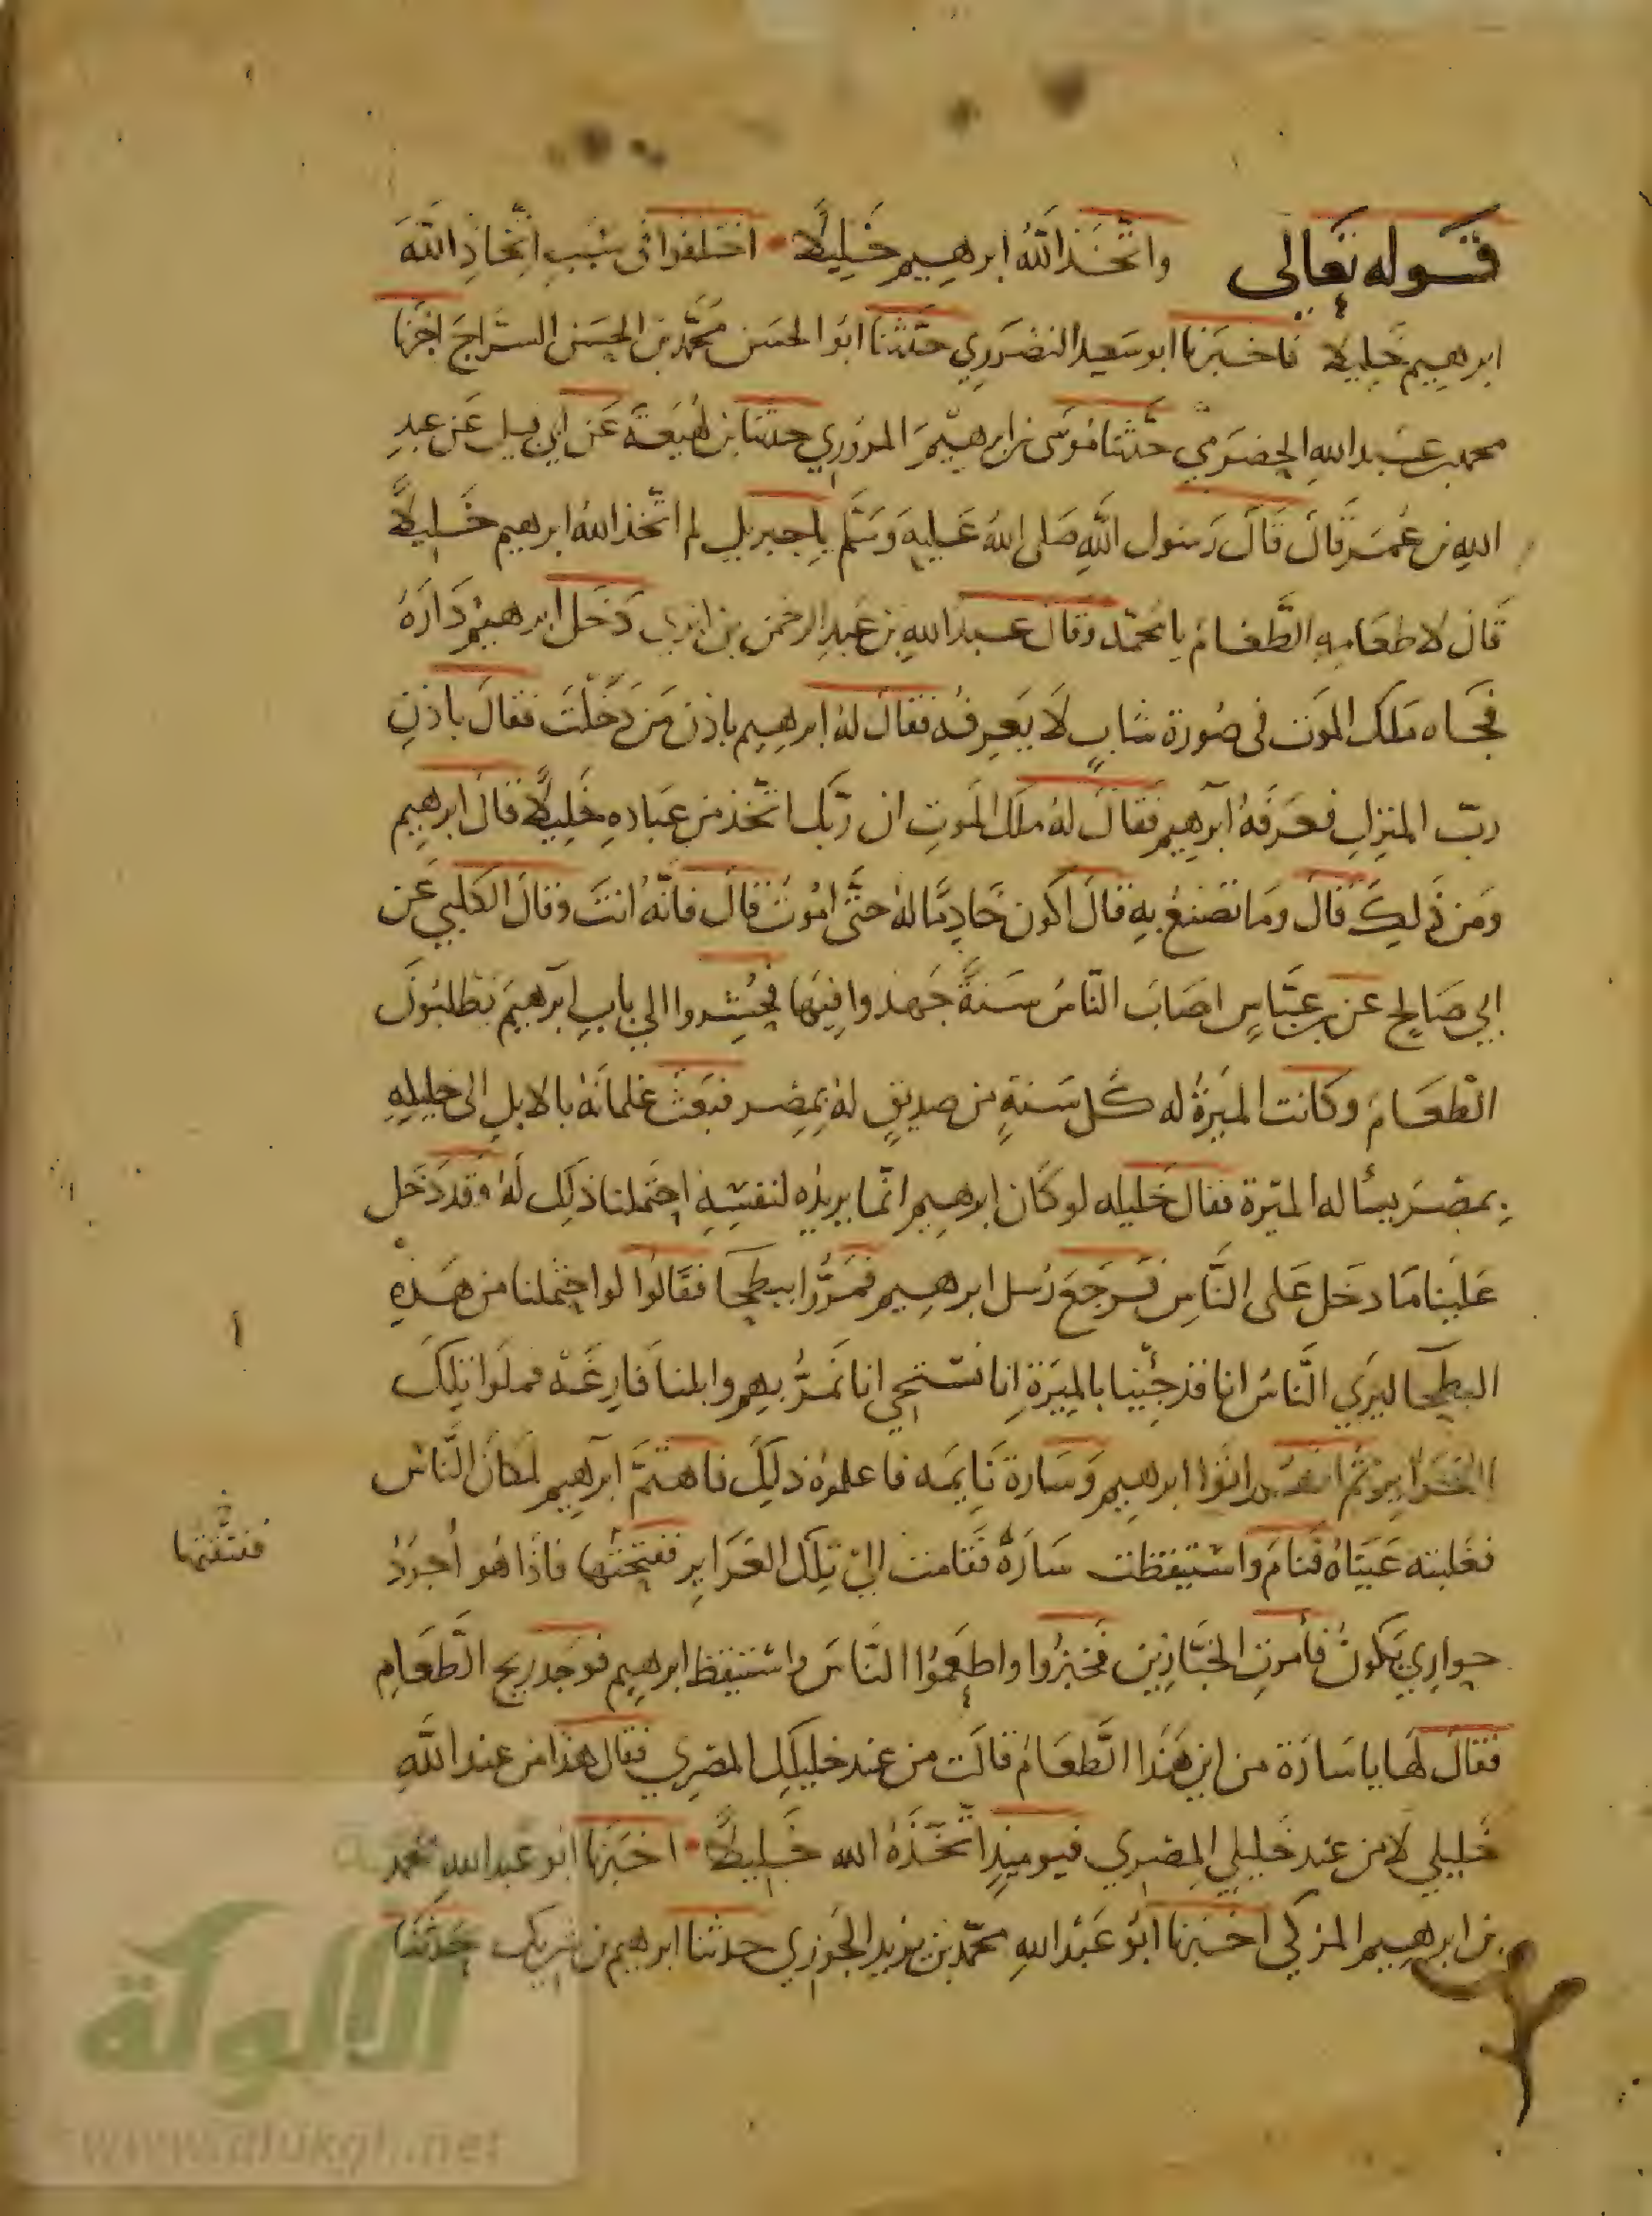 قوله تعالى واتخذ الله ابرهيم خليلا اختلفوا فى سبب اتخاذ الله
ابرهيم خليلا فاخبرنا ابو سعيد النضروي حدثنا ابو الحسن محمد بن الحسن السراج اخبرنا
محمد بن عبد الله الحضرمي حدثنا موسى بن ابرهيم المروزي حدثنا بن لهيعة عن ابي قبيل عن عبد
الله بن عمر قال قال رسول الله صلى الله عليه وسلم يا جبريل لم اتخذ الله ابرهيم خليلا
قال لاطعامه الطعام يا محمد وقال عبد الله بن عبد الرحمن بن ابزى دخل ابرهيم داره
فجاه ملك الموت فى صورة شاب لا يعرفه فقال له ابرهيم باذن من دخلت فقال باذن
رب المنزل فعرفه ابرهيم فقال له ملك الموت ان ربك اتخذ من عباده خليلا قال ابرهيم
ومن ذلك قال وما تصنع به قال اكون خادما له حتى اموت قال فانه انت وقال الكلبي عن
ابي صالح عن بن عباس اصاب الناس سنة جهدوا فيها فحشروا الى باب ابرهيم يطلبون
الطعام وكانت الميرة له كل سنة من صديق له بمصر فبعث غلمانه بالابل الى خليله
بمصر يسأله الميرة فقال خليله لو كان ابرهيم انما يريده لنفسه احتملنا ذلك له وقد دخل
علينا ما دخل على الناس فرجع رسل ابرهيم فمروا ببطحا فقالوا لو احتملنا من هذه
البطحا ليرى الناس انا قد جئنا بالميرة انا نستحي انا نمر بهم وابلنا فارغة فملوا تلك
الغراير ثم اتوا ابرهيم وسارة نايمه فاعلموه ذلك فاهتم ابرهيم لمكان الناس
فغلبته عيناه فنام واستيقظت سارة فقامت الى تلك الغراير ففتحتها فاذا هو اجود
حواري يكون فأمرت الخبازين فخبزوا واطعموا الناس واستيقظ ابرهيم فوجد ريح الطعام
فقال لها يا سارة من اين هذا الطعام قالت من عند خليلك المصري فقال هذا من عند الله
خليلي لا من عند خليلي المصري فيوميذ اتخذه الله خليلا اخبرنا ابو عبد الله محمد
بن ابرهيم المزكي اخبرنا ابو عبد الله محمد بن يزيد الجوزي حدثنا ابرهيم بن شريك حدثنا
أ
ففتقتها
الألوكة
www.alukah.net